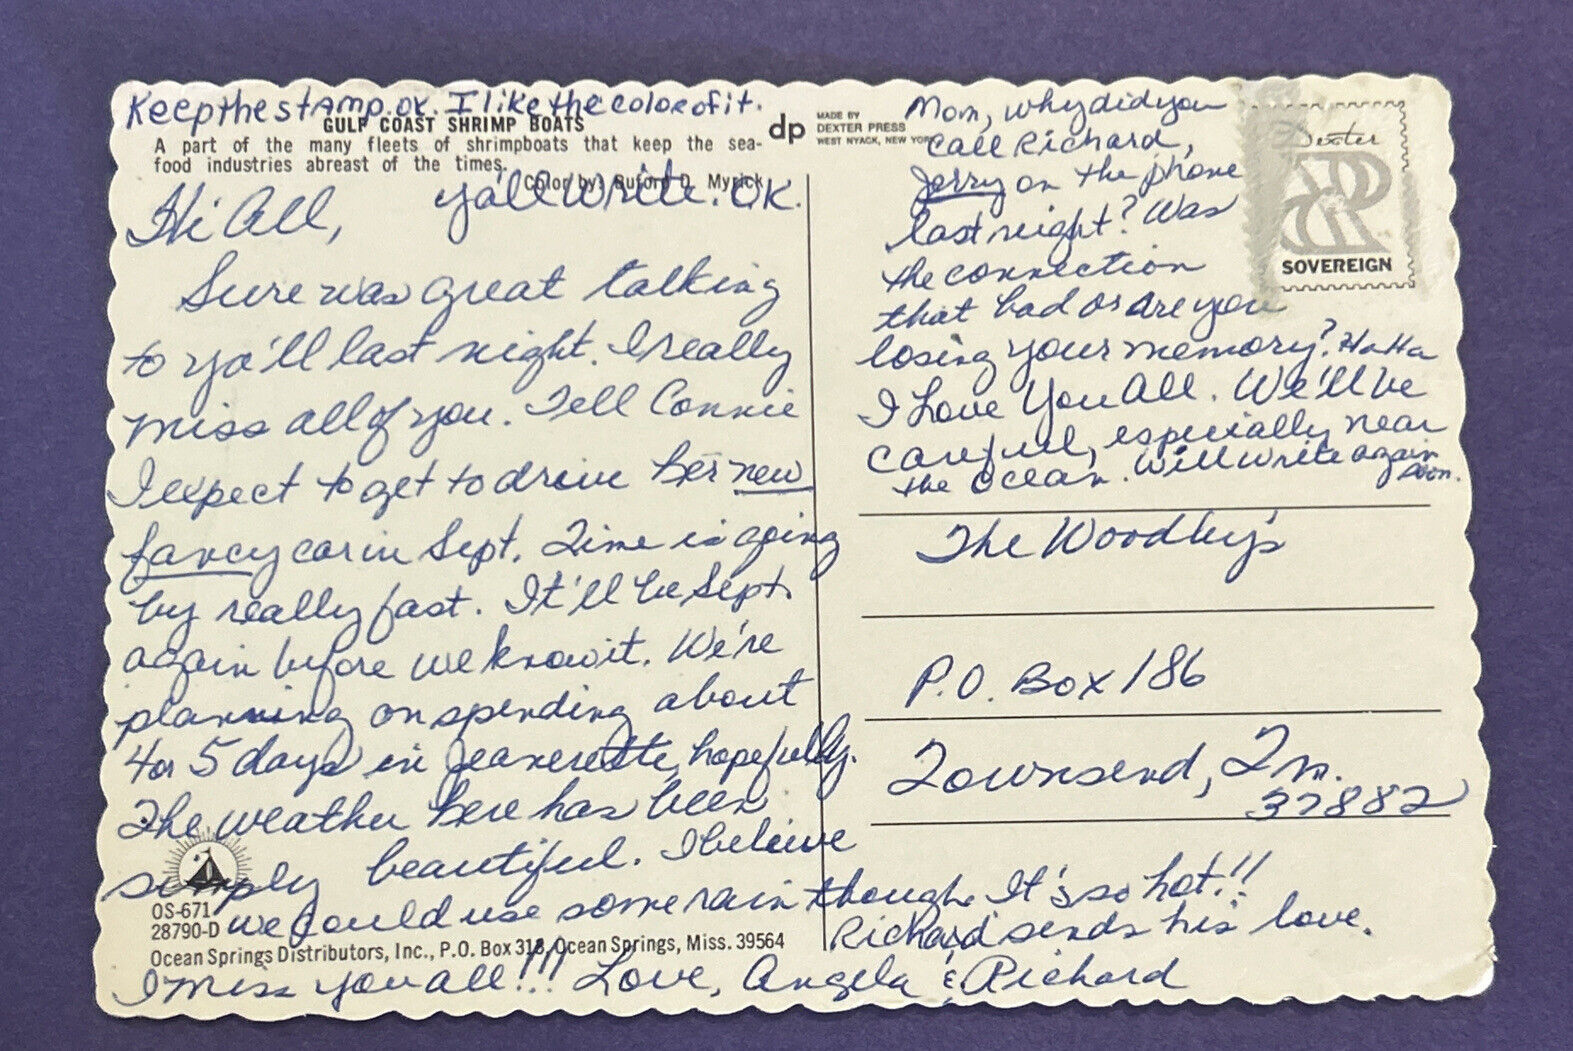 Keep the stamp. ok. I like the color of it.
GULF COAST SHRIMP BOATS
A part of the many fleets of shrimpboats that keep the sea-
food industries abreast of the times.
Color by: Buford D. Myrick
dp
MADE BY
DEXTER PRESS
WEST NYACK, NEW YORK
Hi All,
ya'll write. OK.
Sure was great talking
to ya'll last night. I really
miss all of you. Tell Connie
I expect to get to drive her new
fancy car in Sept. Time is going
by really fast. It'll be Sept.
again before we know it. We're
planning on spending about
4 or 5 days in Jeanerette, hopefully.
The weather here has been
simply beautiful. I believe
we could use some rain though. It's so hot!!
Richard sends his love.
I miss you all!!! Love, Angela & Richard
OS-671
28790-D
Ocean Springs Distributors, Inc., P.O. Box 318, Ocean Springs, Miss. 39564
Mom, why did you
call Richard,
Jerry on the phone
last night? Was
the connection
that bad or are you
losing your memory? Ha Ha
I Love You All. We'll be
careful, especially near
the Ocean. Will write again
soon.
Dexter
SOVEREIGN
The Woodby's
P.O. Box 186
Townsend, Tn.
37882